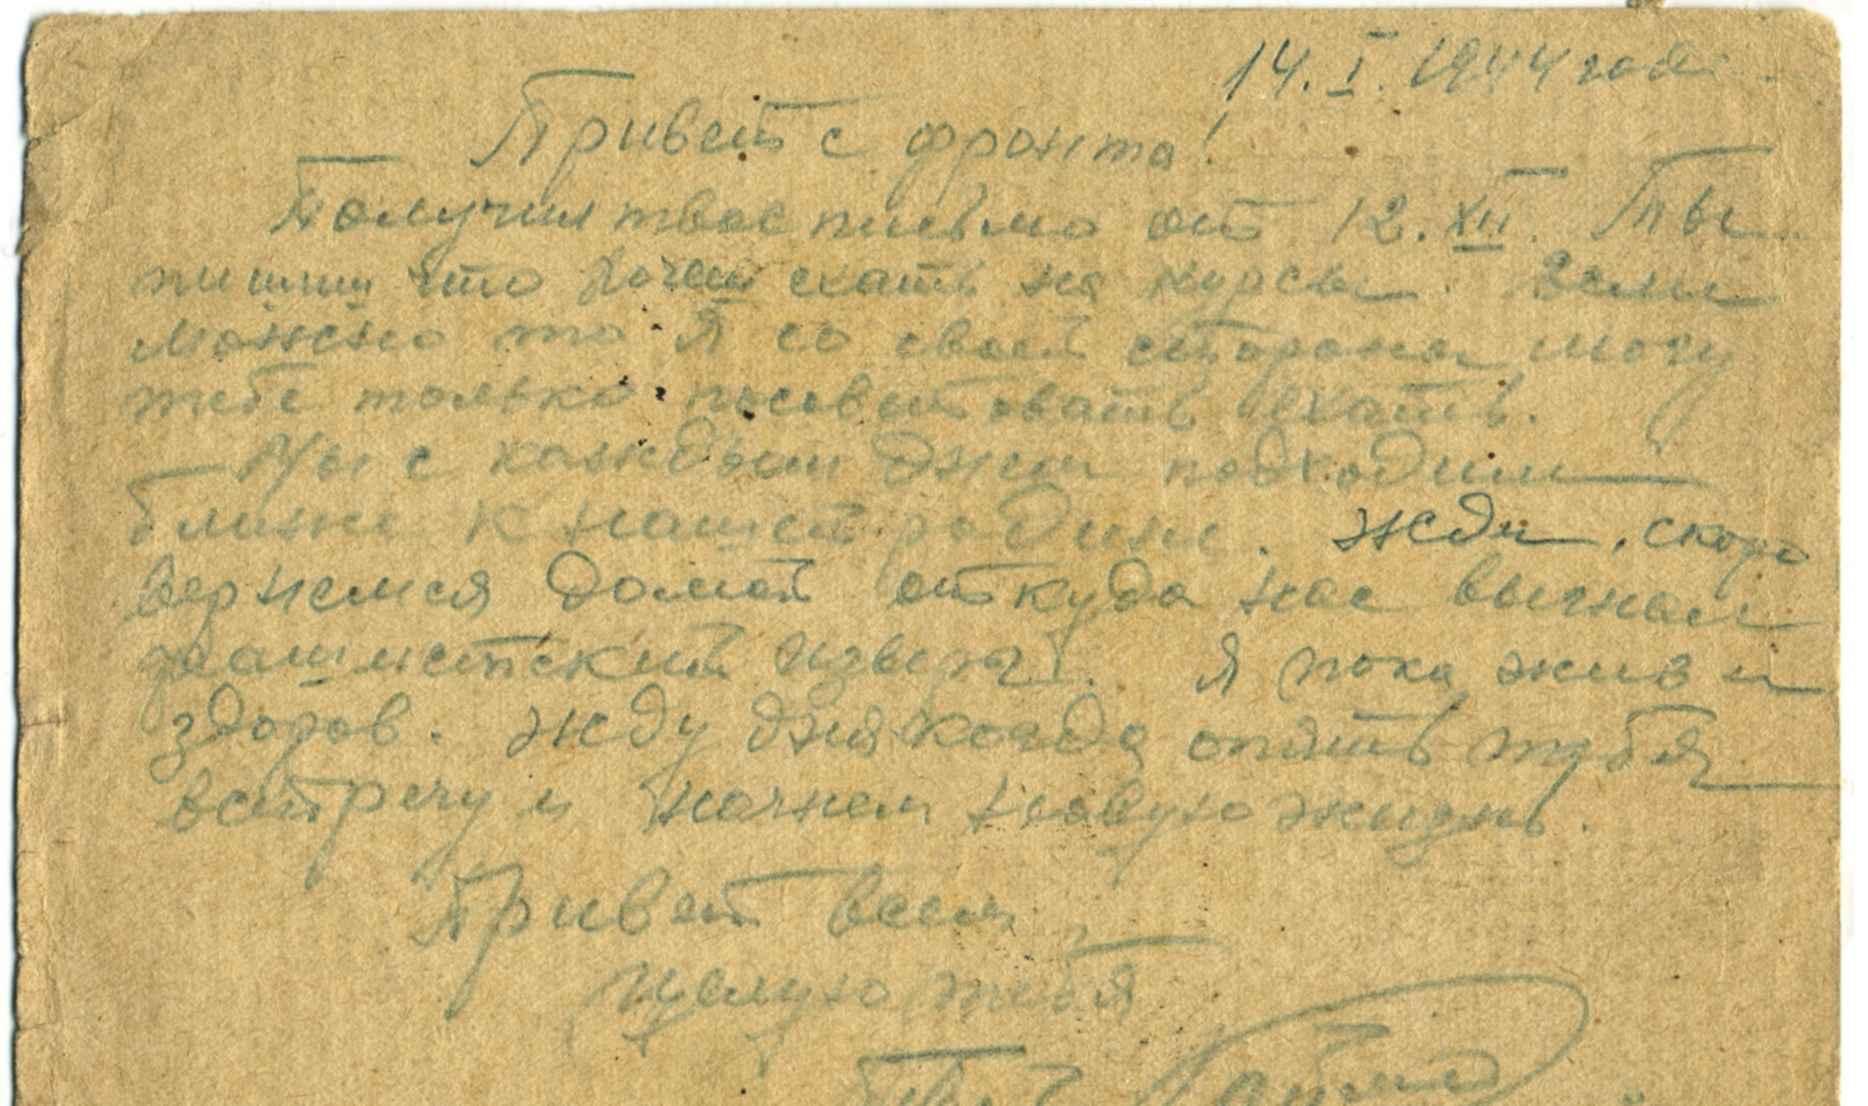 14. I. 1944 года
Привет с фронта!
Получил твое письмо от 12. XII. Ты
пишиш что хочеш ехать на курсы. Если
можно то я со своей стороны могу
тебе только посоветовать ехать.
Мы с каждым днем подходим
ближе к нашей родине. Жди, скоро
вернемся домой откуда нас выгнал
фашистский изверг. Я пока жив и
здоров. Жду дня когда опять тебя
встречу и начнем новую жизнь.
Привет всем,
Целую тебя
Твой